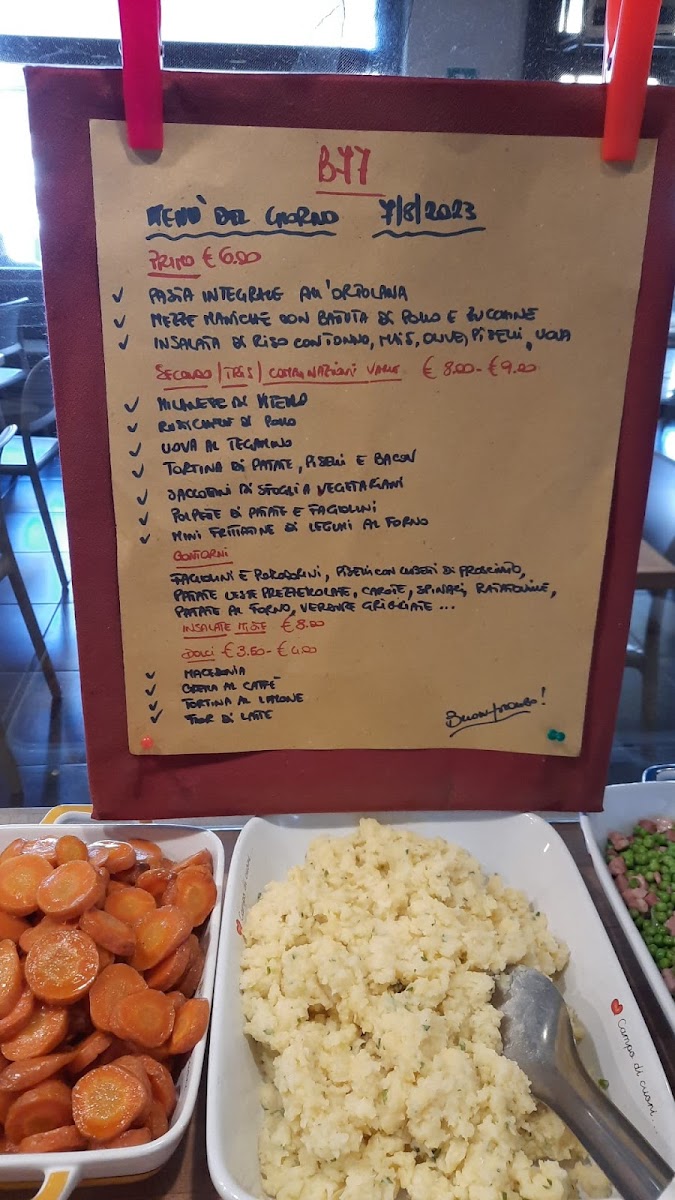 B77
MENÙ DEL GIORNO 7/8/2023
PRIMO € 6.00
PASTA INTEGRALE ALL'ORTOLANA
MEZZE MANICHE CON BATUTA DI POLLO E ZUCCHINE
INSALATA DI RISO CON TONNO, MAIS, OLIVE, PISELLI, UOVA
SECONDO / TRIS / COMBINAZIONI VARIE € 8.00 - € 9.00
MILANESE DI VITELLO
DI POLLO
UOVA AL TEGAMINO
TORTINA DI PATATE, PISELLI E BACON
SACCOTTINI DI SFOGLIA VEGETARIANI
POLPETTE DI PATATE E FAGIOLINI
MINI FRITTATINE DI LEGUMI AL FORNO
CONTORNI
FAGIOLINI E POMODORINI, PISELLI CON CUBETTI DI PROSCIUTTO,
PATATE LESSE PREZZEMOLATE, CAROTE, SPINACI, RATATOUILLE,
PATATE AL FORNO, VERDURE GRIGLIATE ...
INSALATE MISTE € 8.00
DOLCI € 3.50 - € 4.00
MACEDONIA
CREMA AL CAFFÈ
TORTINA AL LIMONE
FIOR DI LATTE
Buon pranzo!
Campo di cuori...